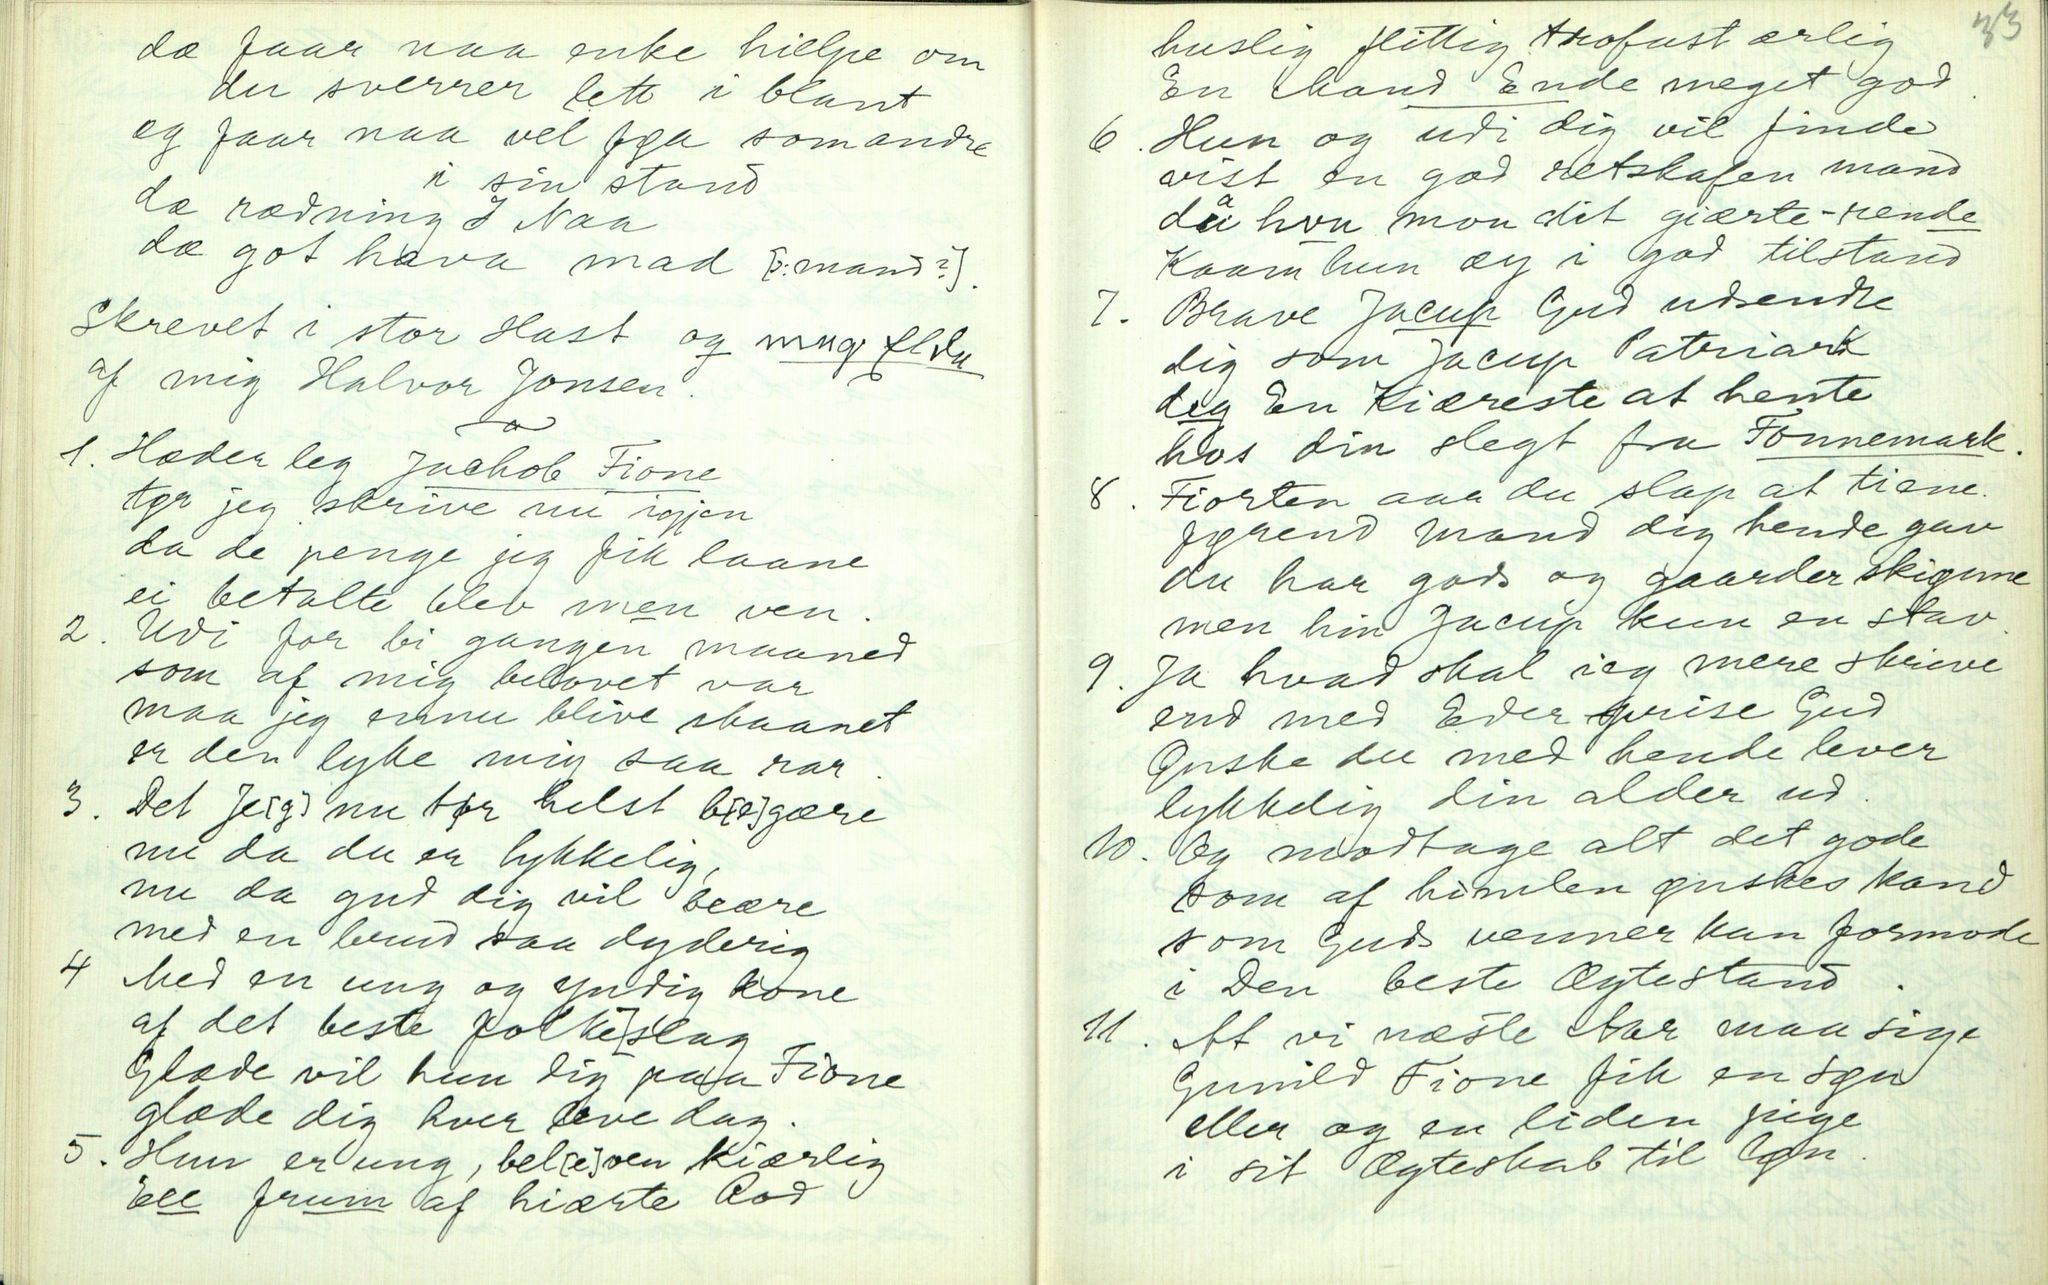 dæ faar naa enke hielpe om
du sverrer lett i blant
eg faar naa vel føa som andre
i sin stand
dæ rædning I Naa
dæ got hava mad [ɔ: mand?].
Skrevet i stor Hast og
af mig Halvor Jonsen.
1. Hæderleg Jachob Fione
tør jeg skrive nu igjen
da de penge jeg fik laane
ei betalte blev men ven.
2. Udi for bi gangen maaned
som af mig belovet var
maa jeg ennu blive skaanet
er den lyke mig saa rar.
3. Det Je[g] nu tør helst b[e]gære
nu da du er lykkelig,
nu da gud dig vil beære
med en brud saa dyderig
4 Med en ung og yndig kone
af det beste folke[slag
Glæde vil hun dig paa Fione
glæde dig hver leve dag.
5. Hun er ung, bel[e]ven kiærlig
Ell frum af hiærte Rod
33
huslig flittig trofast ærlig
En Mand Ende meget god.
6. Hun og udi dig vil finde
vist en god retskafen mand
då hvu mon dit giærte-rende
Kaam hun æy i god tilstand
7. Brave Jacup Gud udsendte
dig som Jacup Patriark
dig En Kiæreste at hente
hos din slegt fra Fonnemark.
8. Fiorten aaa du slap at tiene.
førend Mand dig hende gav
du har gods og gaarder skiønne
men hin Jacup kun en stav.
9. Ja hvad skal ieg mere skrive
end med Eder prise Gud
Ønske du med hende lever
lykkelig din alder ud.
10. Og modtage alt det gode
som af himlen ønskes kand
som Guds venner kan formode
i Den beste Ægtestand.
11. At vi næste Aar maa sige
Gunild Fione fik en søn
eller og en liden pige
i sit Ægteskab til Løn.